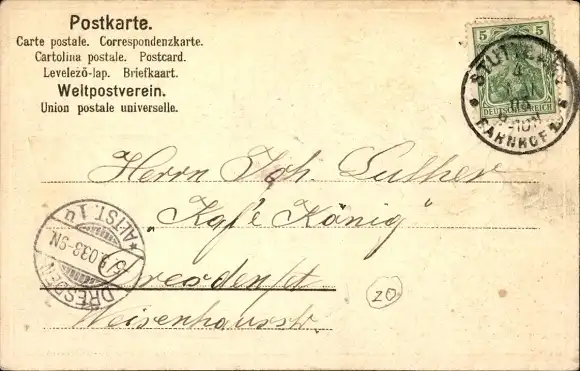 Postkarte.
Carte postale. Correspondenzkarte.
Cartolina postale. Postcard.
Levelező-lap. Briefkaart.
Weltpostverein.
Union postale universelle.
5 5
DEUTSCHES REICH
BAHNHOF
Herrn Joh. Luther
"Kgl's König"
Dresden
Weisenhausstr.
DRESDEN ALTST. 1 u
20